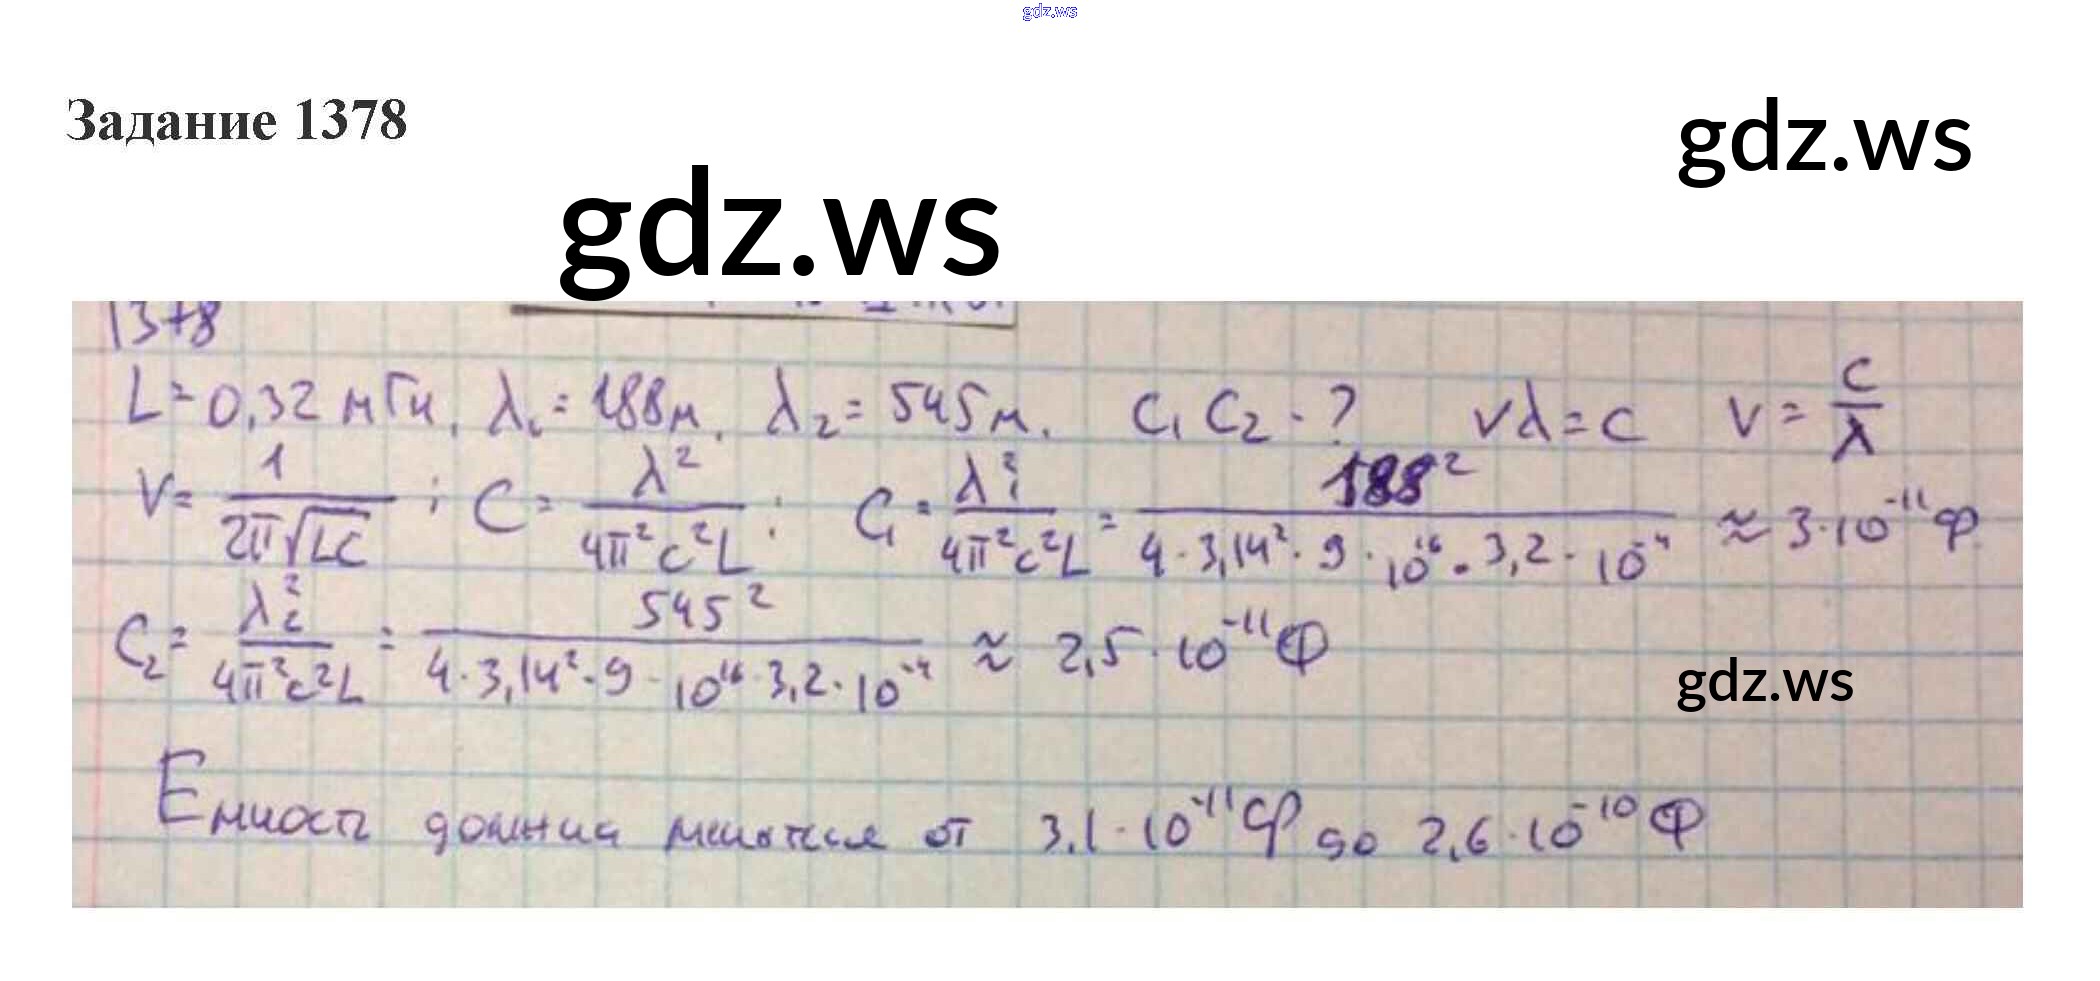 gdz.ws
Задание 1378
gdz.ws
gdz.ws
1378
L = 0,32 мГн, λ₁ = 188м, λ₂ = 545м. C₁ C₂ - ? νλ = c ν = c/λ
ν = 1/(2π√LC) ; C = λ²/(4π²c²L) ; C₁ = λ₁²/(4π²c²L) = 188²/(4 · 3,14² · 9 · 10¹⁶ · 3,2 · 10⁻⁴) ≈ 3 · 10⁻¹¹ Ф
C₂ = λ₂²/(4π²c²L) = 545²/(4 · 3,14² · 9 · 10¹⁶ · 3,2 · 10⁻⁴) ≈ 2,5 · 10⁻¹¹ Ф
gdz.ws
Емкость должна меняться от 3,1 · 10⁻¹¹ Ф до 2,6 · 10⁻¹⁰ Ф